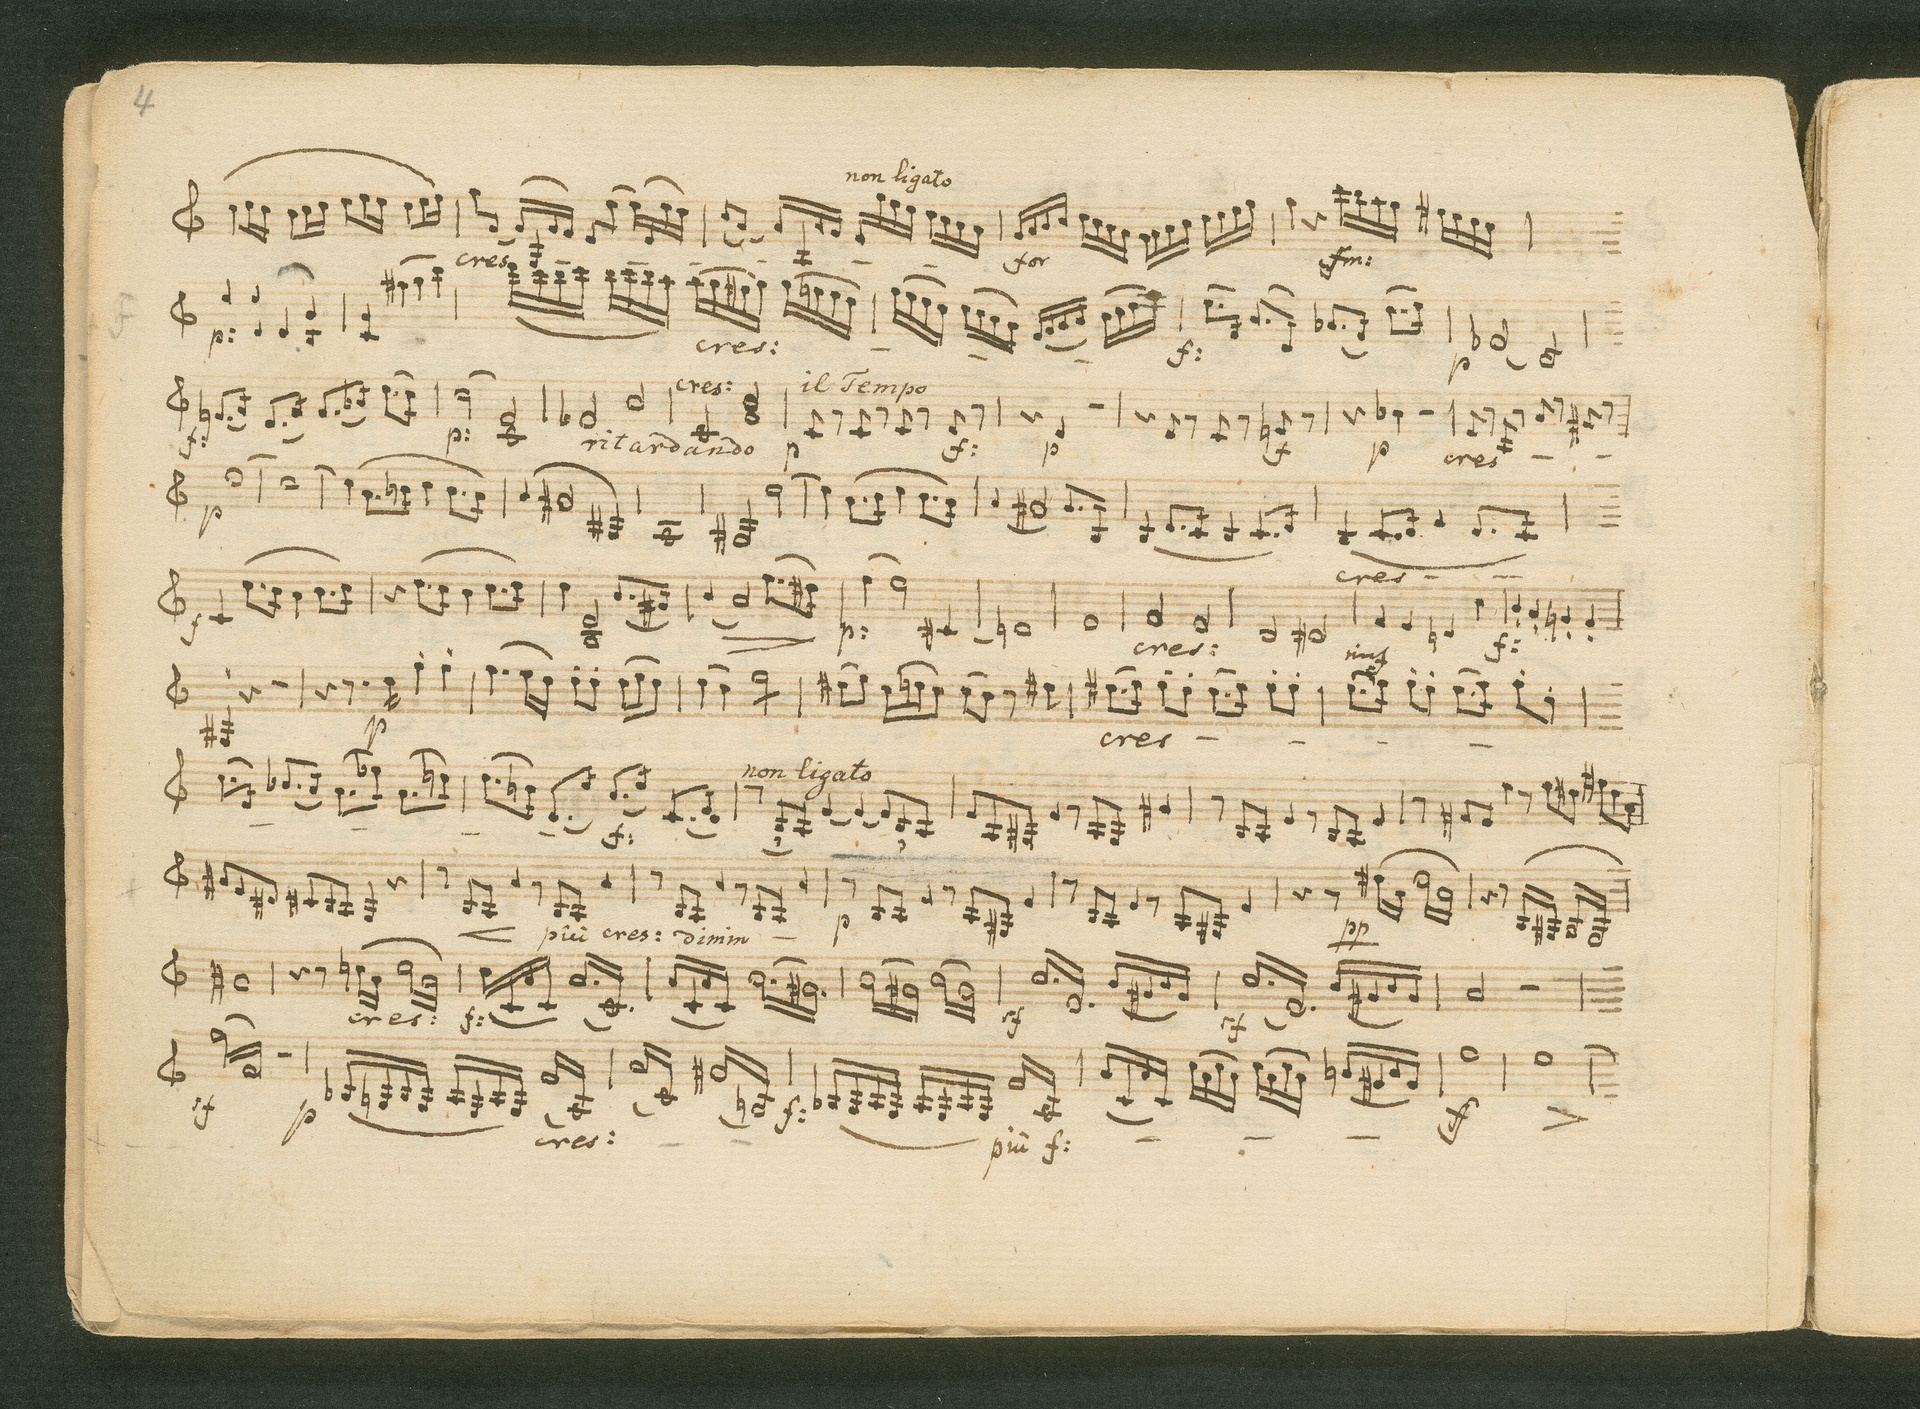 4
non ligato
cres for sfm:
p: cres: f: p
cres: il Tempo
f: p: ritardando p f: p f p cres
p
cres
f p: cres: rinf f:
p
cres
non ligato
f:
più cres: dimin p pp
cres: f: sf sf
sf p cres: f: più f: sf